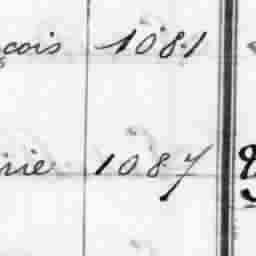 çois 1081
rie 1087